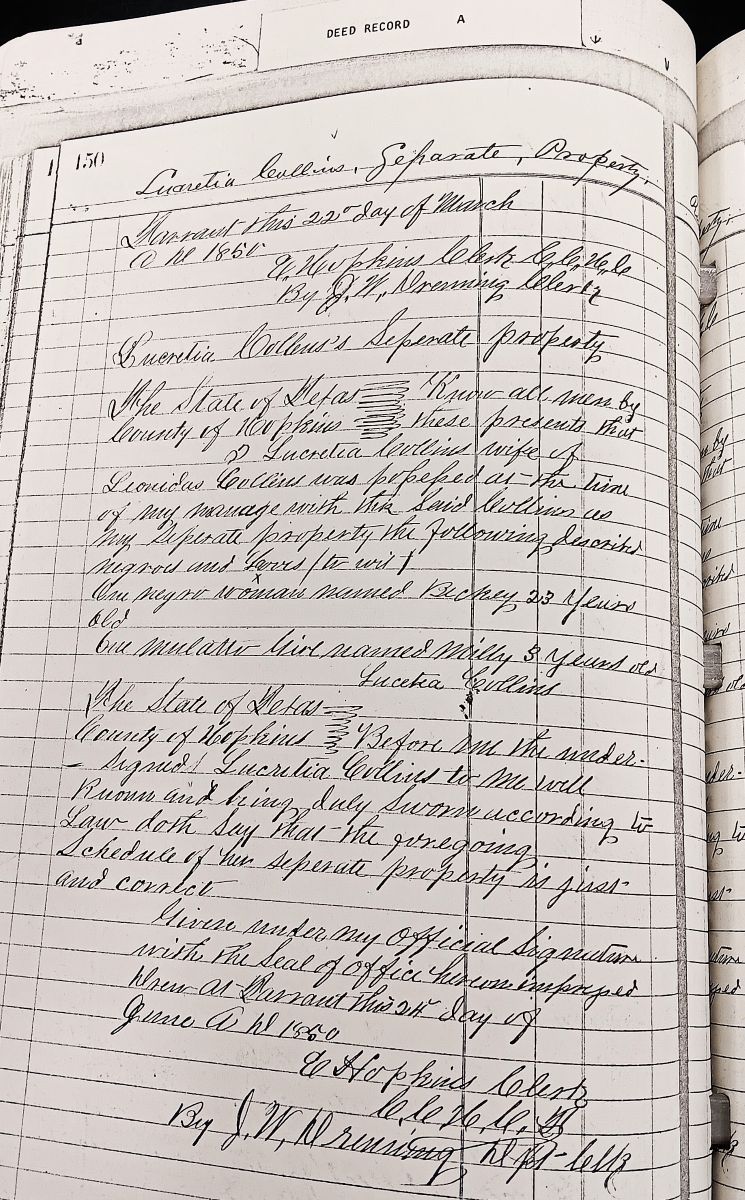 DEED RECORD A
150
Lucretia Collins, Separate, Property,
Tarrant this 22d day of March
A D 1850
E, Hopkins Clerk C, C, H, C
By J, W, Drenning Clerk
Lucretia Collins's Seperate property
The State of Texas Know all men by
County of Hopkins these presents that
I Lucretia Collins wife of
Leonidas Collins was possessed at the time
of my marriage with the said Collins as
my seperate property the following described
negroes and (to wit)
One negro woman named Beckey 23 Years
old
One mulatto Girl named Milly 3 Years old
Lucetia Collins
The State of Texas
County of Hopkins Before me the under-
- signed Lucretia Collins to me well
Known and being duly sworn according to
Law doth say that the foregoing
Schedule of her seperate property is just
and correct
Given under my official Signature
with the Seal of office hereon impressed
at Tarrant this 24 day of
June A D 1850
E Hopkins Clerk
C, C, H, C,
By J, W, Drenning